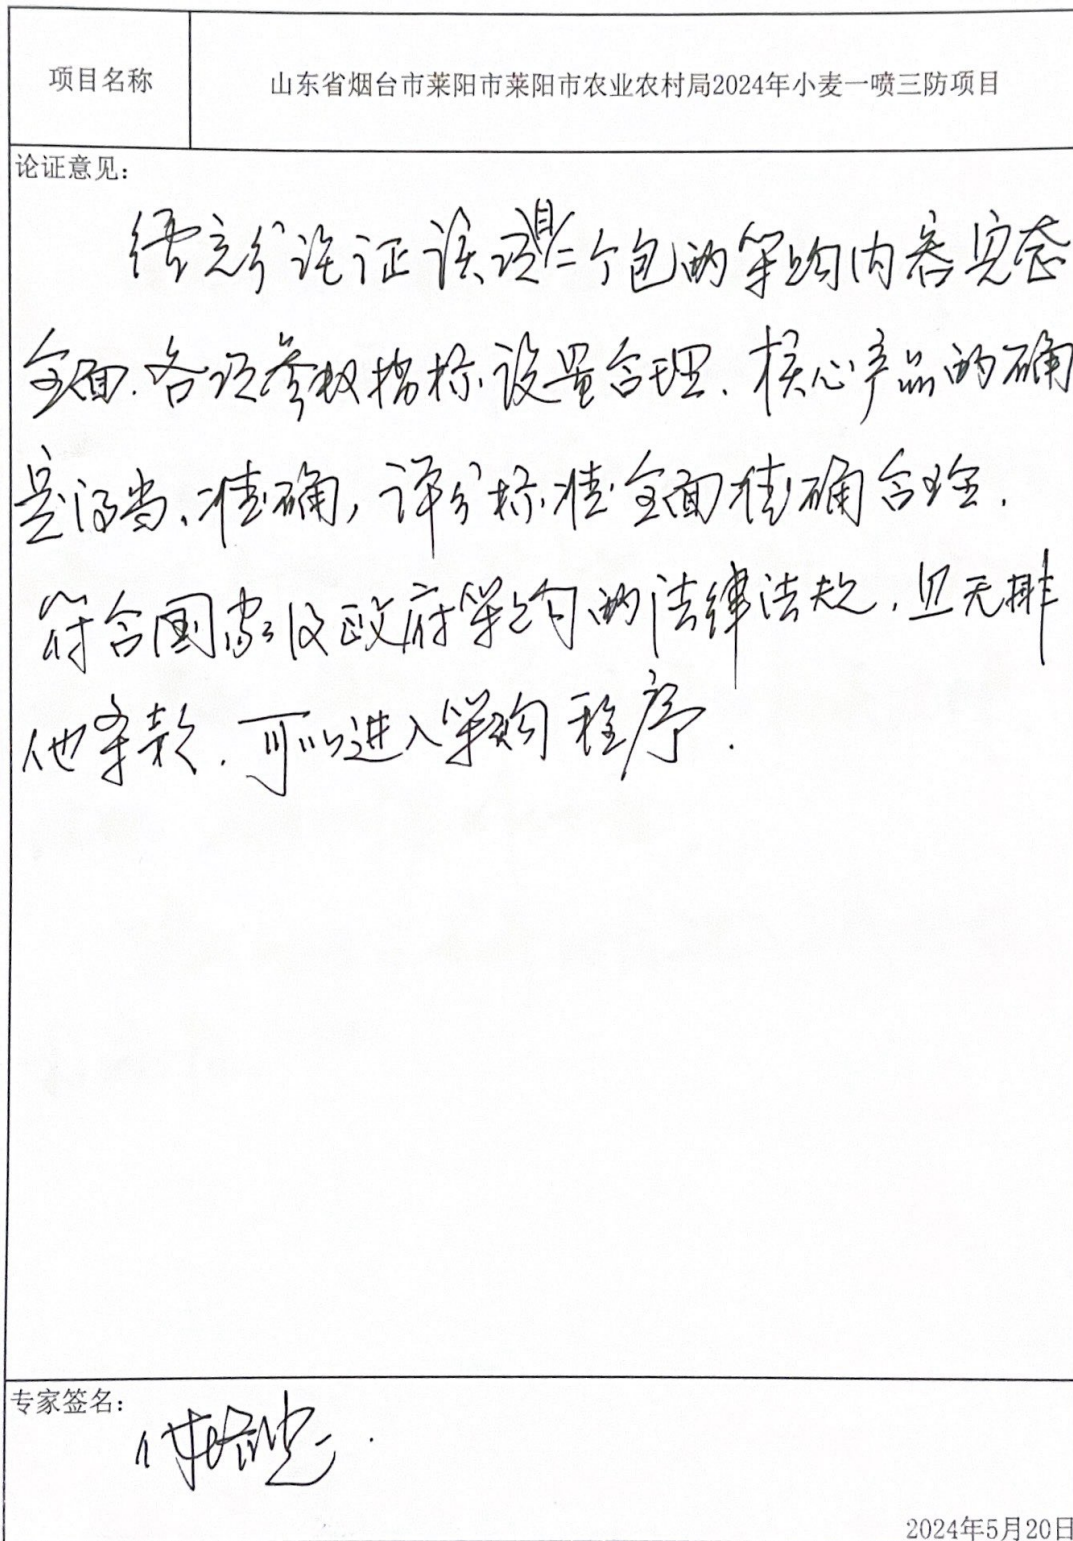 项目名称
山东省烟台市莱阳市莱阳市农业农村局2024年小麦一喷三防项目
论证意见：
经充分论证该项目二个包的采购内容完整
全面.各项参数指标设置合理.核心产品的确
定得当、准确,评分标准全面准确合理.
符合国家及政府采购的法律法规.且无排
他条款.可以进入采购程序.
专家签名：
2024年5月20日